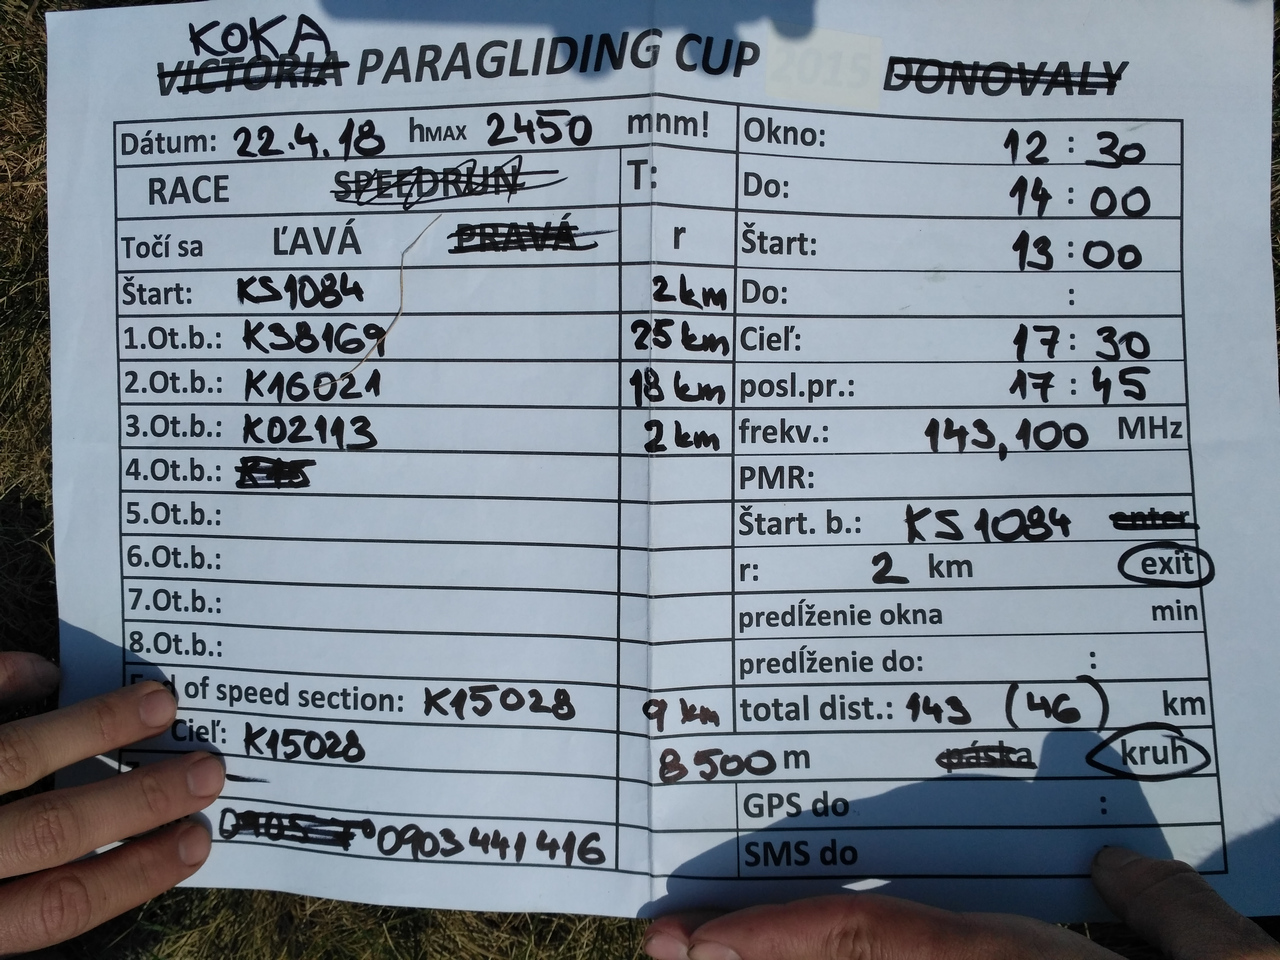 KOKA
VICTORIA PARAGLIDING CUP 2015 DONOVALY
Dátum: 22.4.18 hMAX 2450 mnm!
RACE SPEEDRUN T:
Točí sa ĽAVÁ PRAVÁ r
Štart: KS1084 2 km
1.Ot.b.: K38169 25 km
2.Ot.b.: K16021 18 km
3.Ot.b.: K02113 2 km
4.Ot.b.:
5.Ot.b.:
6.Ot.b.:
7.Ot.b.:
8.Ot.b.:
End of speed section: K15028 9 km
Cieľ: K15028 8500 m páska kruh
0903 441 416
Okno: 12 : 30
Do: 14 : 00
Štart: 13 : 00
Do: :
Cieľ: 17 : 30
posl.pr.: 17 : 45
frekv.: 143,100 MHz
PMR:
Štart. b.: KS1084 enter
r: 2 km exit
predĺženie okna min
predĺženie do: :
total dist.: 143 (46) km
GPS do :
SMS do